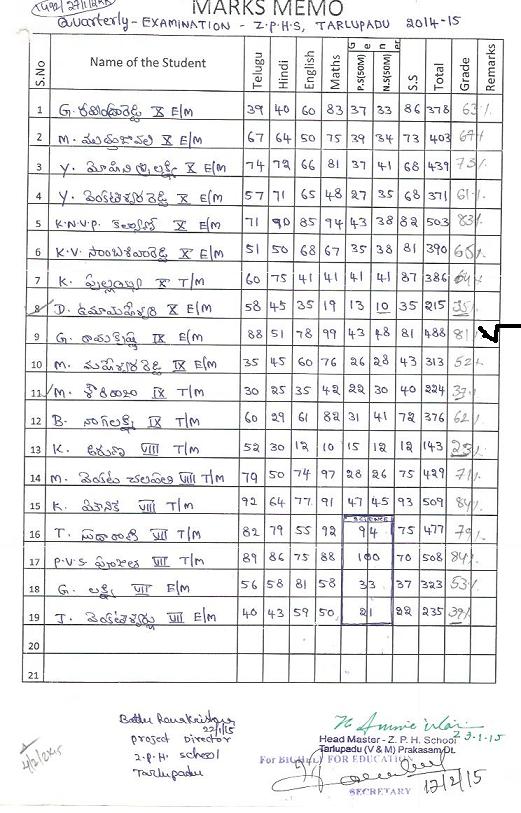 MARKS MEMO
Quarterly - EXAMINATION - Z.P.H.S, TARLUPADU 2014-15
S.No Name of the Student Telugu Hindi English Maths P.S(50M) N.S(50M) S.S Total Grade Remarks
1 G. X E/M 39 40 60 83 37 33 86 378 63%
2 M. X E/M 67 64 50 75 39 34 73 403 67%
3 Y. X E/M 74 72 66 81 37 41 68 439 73%
4 Y. వెంకటేశ్వరరెడ్డి X E/M 57 71 65 48 27 35 68 371 61%
5 K.N.V.P. కల్యాణ్ X E/M 71 90 85 94 43 38 82 503 83%
6 K.V. సాంబశివారెడ్డి X E/M 51 50 68 67 35 38 81 390 65%
7 K. X T/M 60 75 41 41 41 41 87 386 64%
8 D. ఉమామహేశ్వరి X E/M 58 45 35 19 13 10 35 215 35%
9 G. రామకృష్ణ IX E/M 88 51 78 99 43 48 81 488 81%
10 M. మహేశ్వరరెడ్డి IX E/M 35 45 60 76 26 28 43 313 52%
11 M. IX T/M 30 25 35 42 22 30 40 224 37%
12 B. నాగలక్ష్మి IX T/M 60 29 61 82 31 41 72 376 62%
13 K. అరుణ VIII T/M 52 30 12 10 15 12 12 143 23%
14 M. వెంకట చలపతి VIII T/M 79 50 74 97 28 26 75 429 71%
15 K. మౌనిక VIII T/M 92 64 77 91 47 45 93 509 84%
SCIENCE
16 T. VII T/M 82 79 55 92 94 75 477 79%
17 P.V.S VII T/M 89 86 75 88 100 70 508 84%
18 G. లక్ష్మి VII E/M 56 58 81 58 33 37 323 53%
19 T. వెంకటేశ్వర్లు VII E/M 40 43 59 50 21 22 235 39%
20
21
Bottu Ramakrishna
22/1/15
project Director
Z.P.H. school
Tarlupadu
23-1-15
Head Master - Z. P. H. School
Tarlupadu (V & M) Prakasam Dt.
For BIGHELP FOR EDUCATION
SECRETARY
12/2/15